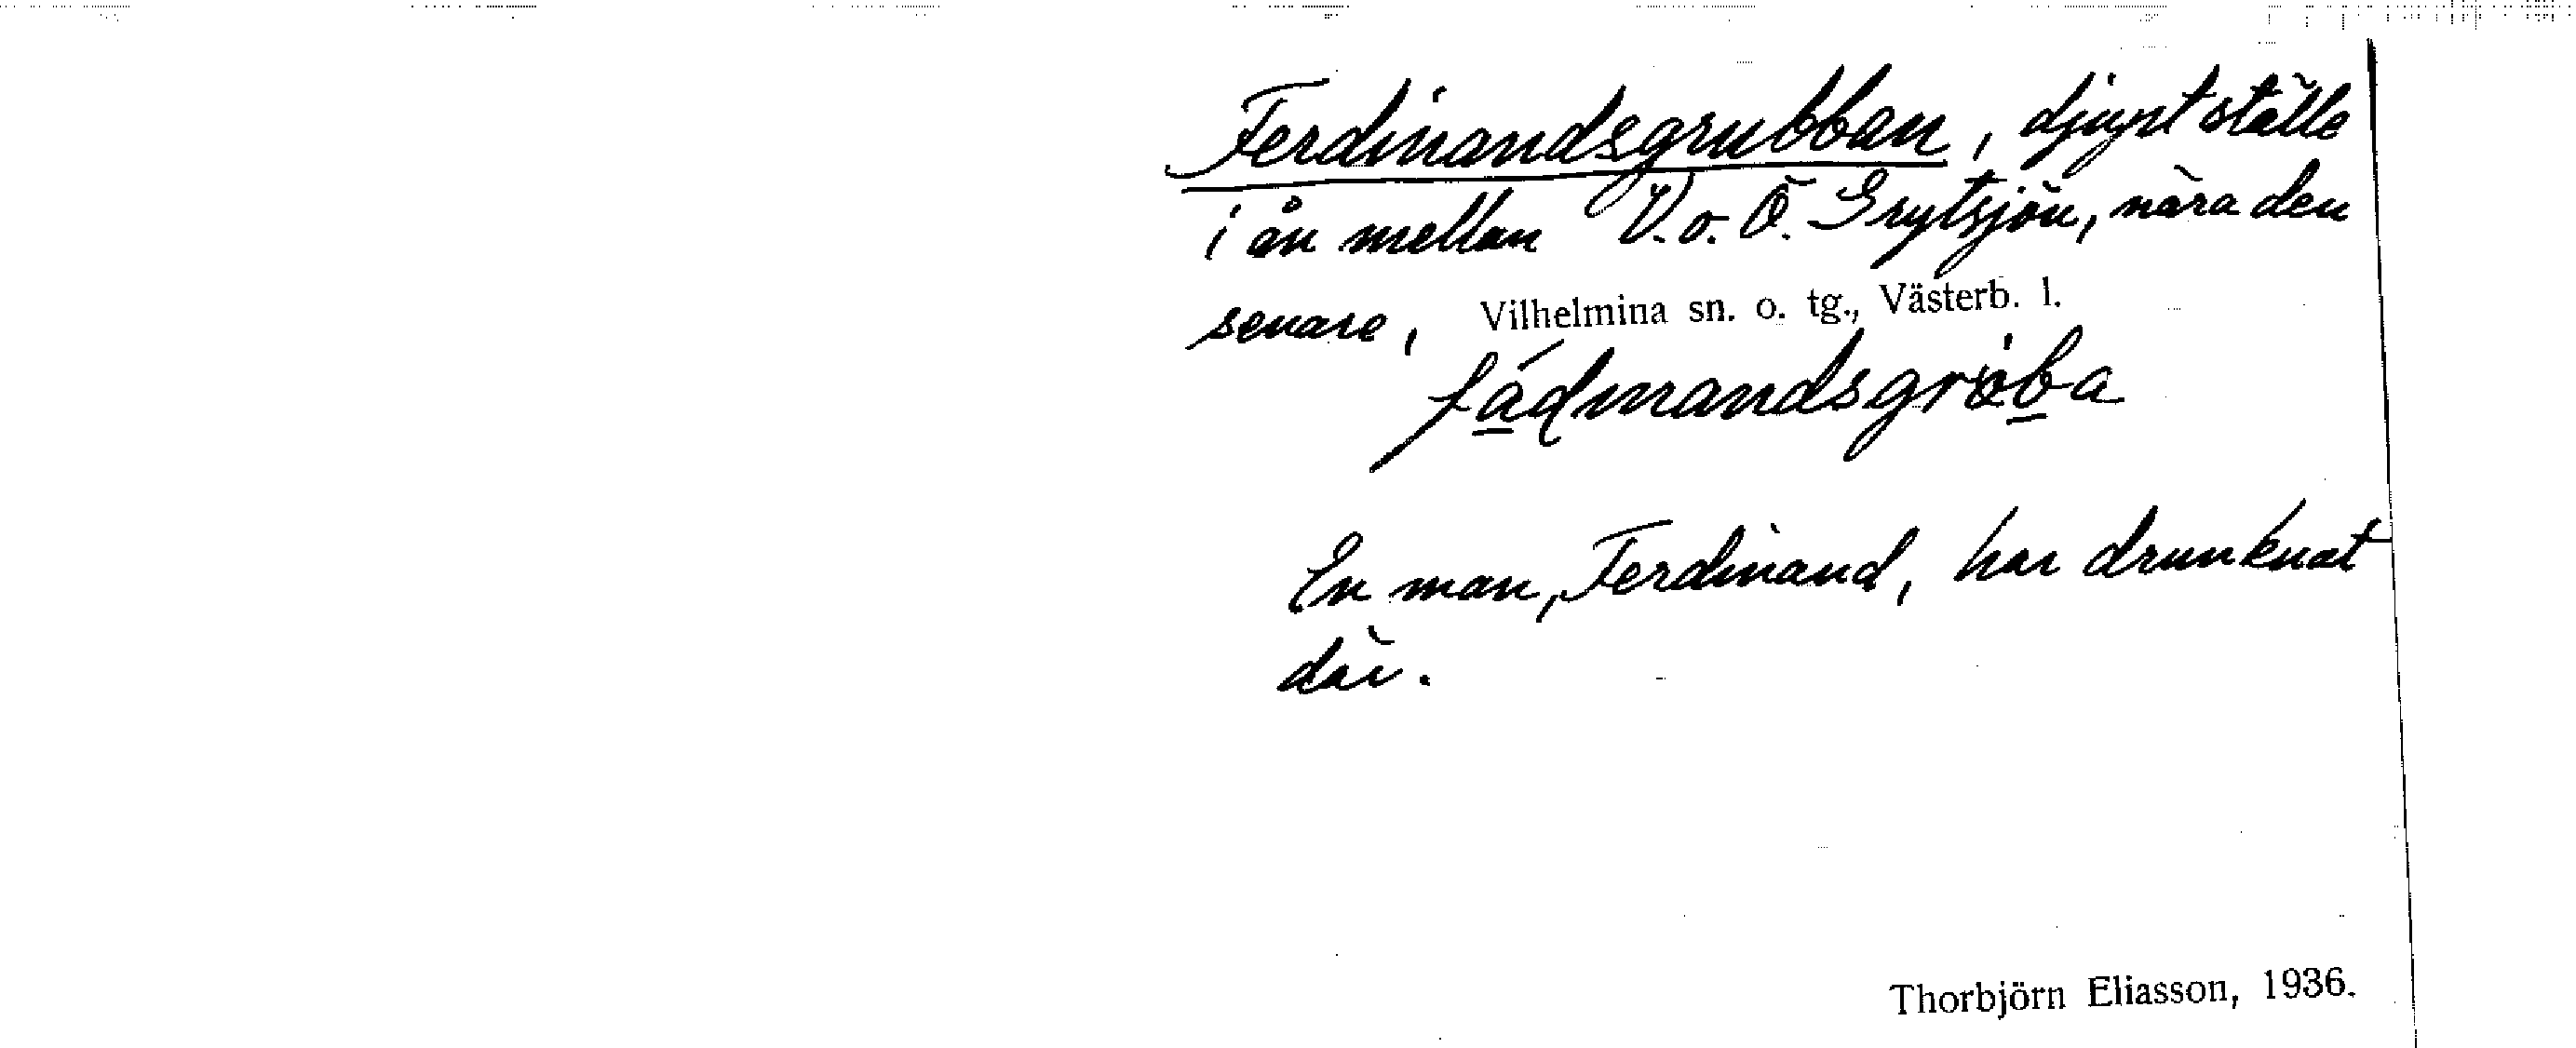 Ferdinandsgrubban, djupt ställe
i ån mellan V. o. Ö. Grytsjön, nära den
senare, Vilhelmina sn. o. tg., Västerb. l.
En man, Ferdinand, har drunknat
där.
Thorbjörn Eliasson, 1936.